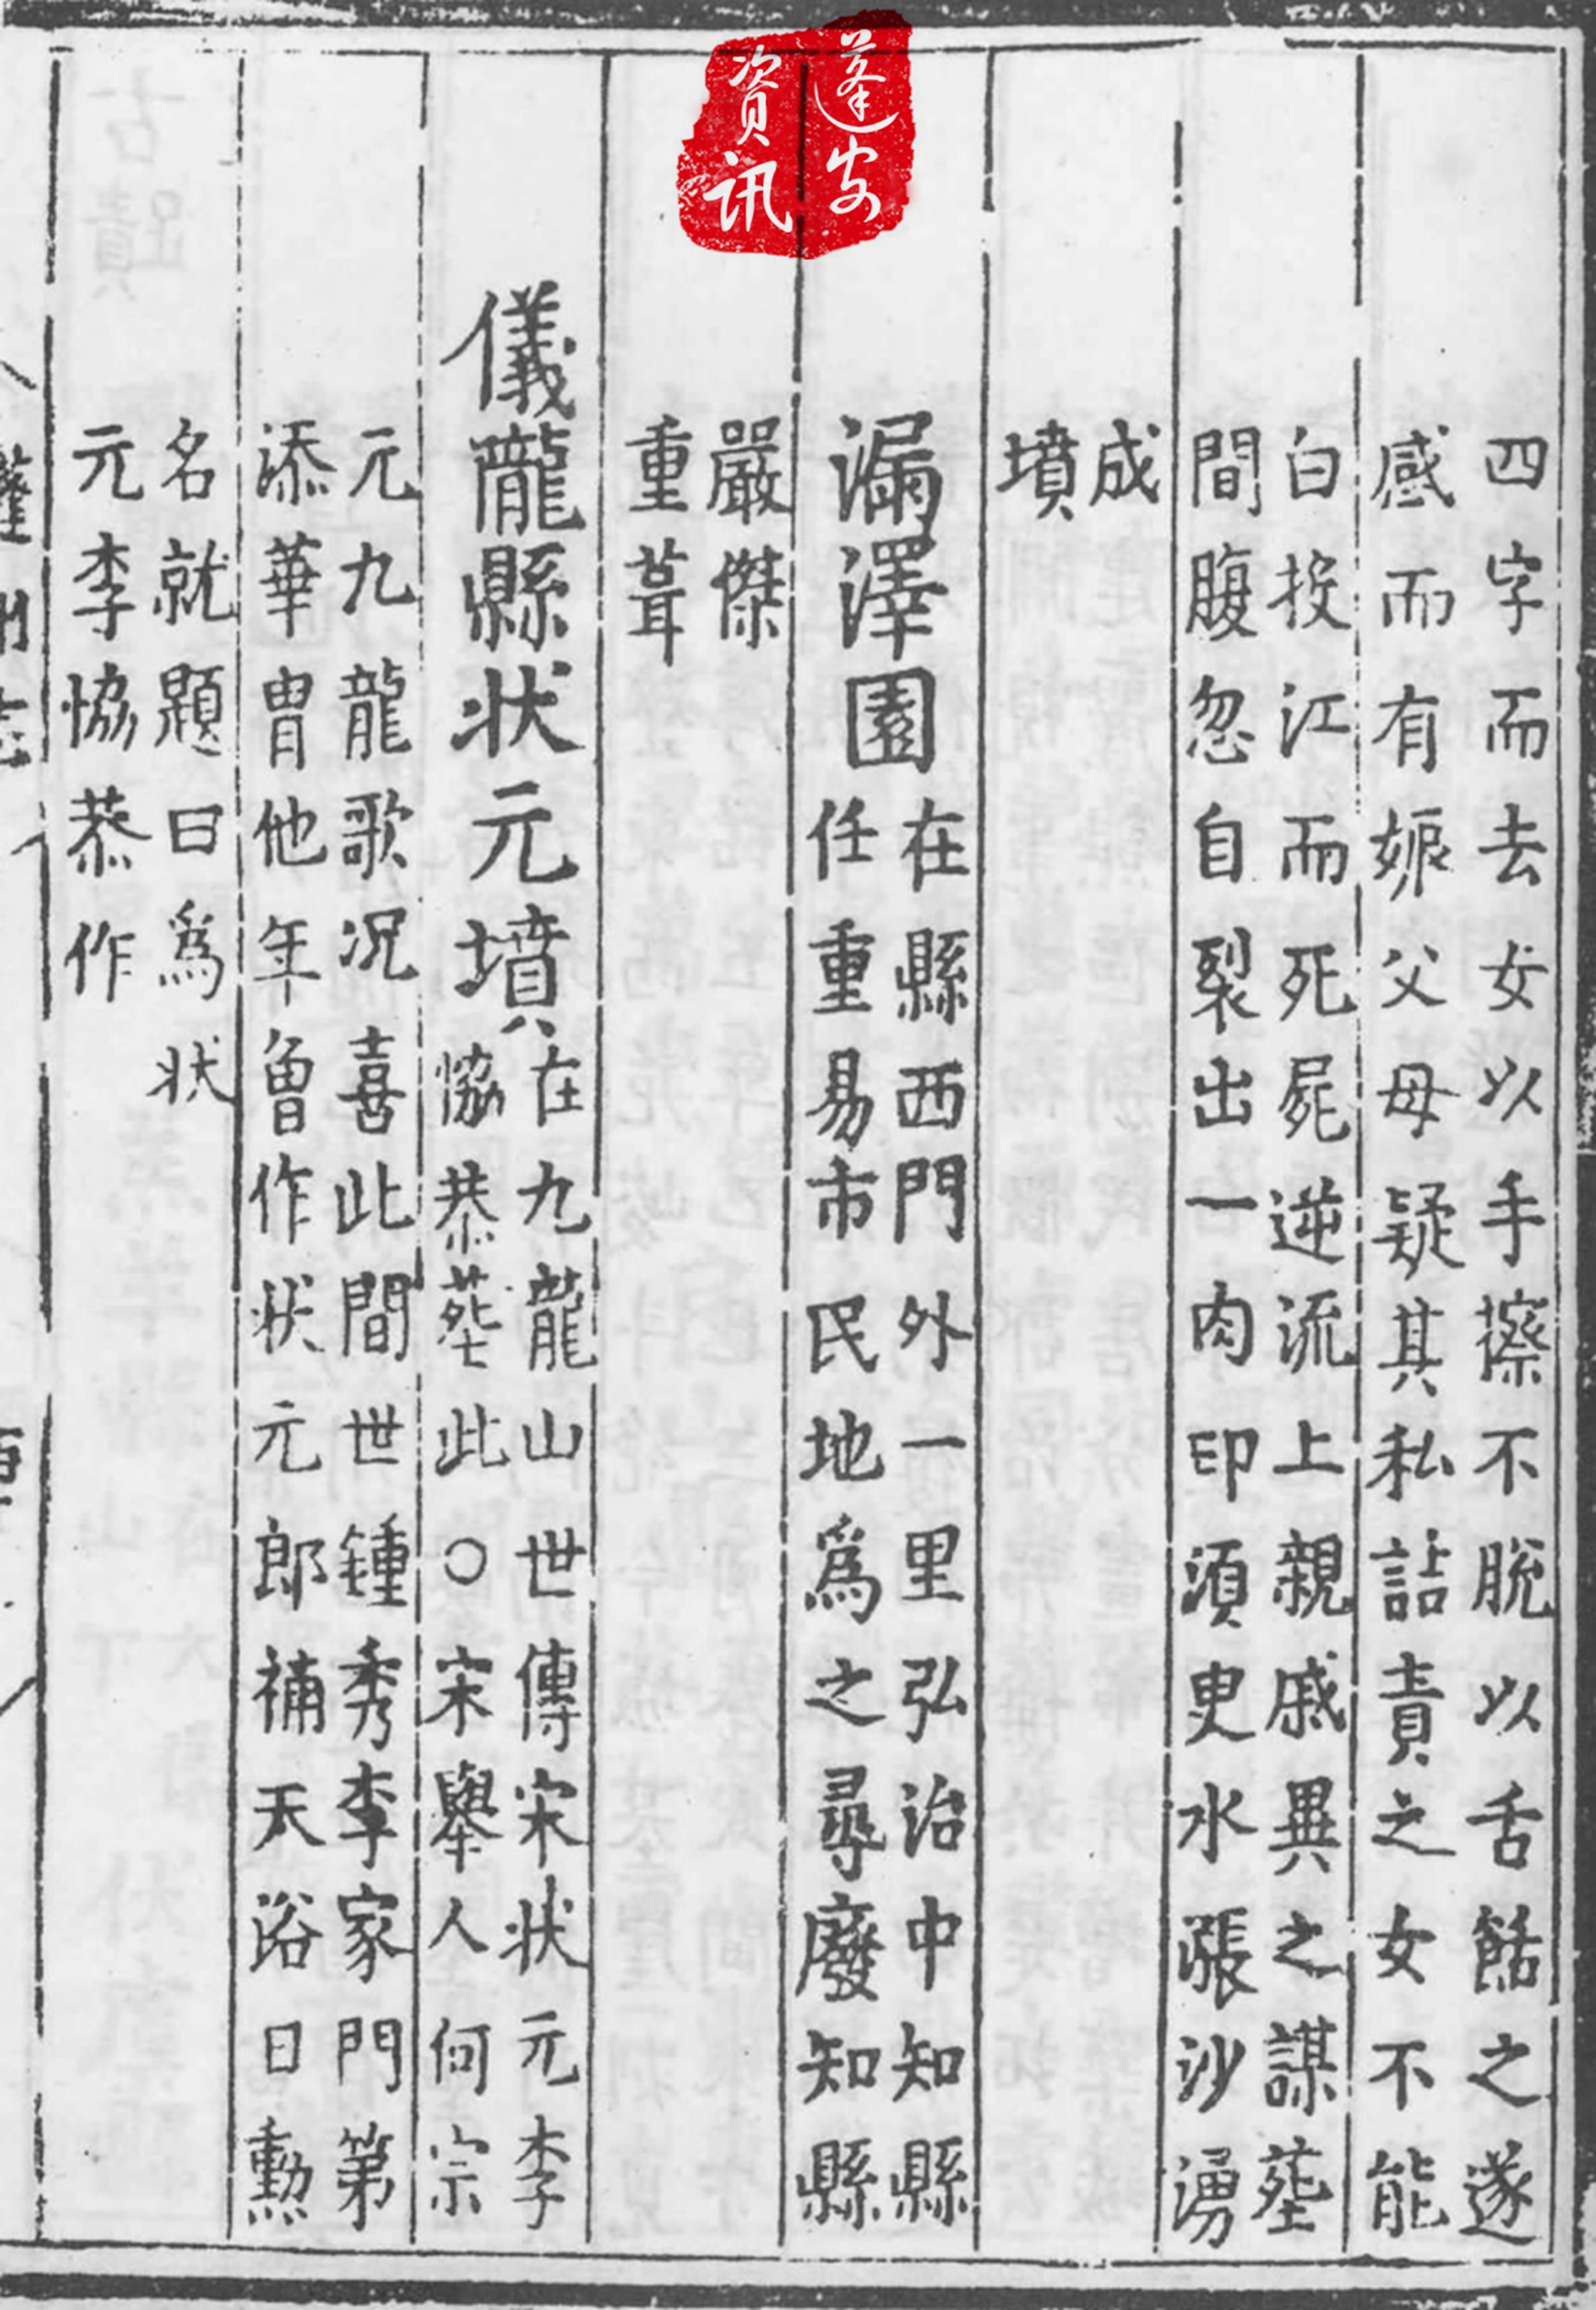 蓬安
资讯
四字而去女以手擦不脫以舌餂之遂
感而有娠父母疑其私詰責之女不能
白投江而死屍逆流上親戚異之謀塟
間腹忽自裂出一肉印須臾水漲沙湧
成
墳
漏澤園
在縣西門外一里弘治中知縣
任重易市民地爲之尋廢知縣
嚴傑
重葺
儀隴縣状元墳
在九龍山世傳宋状元李
恊恭塟此〇宋舉人何宗
元九龍歌况喜此間世鍾秀李家門第
添華胄他年魯作状元郎補天浴日勳
名就題曰爲状
元李恊恭作
蓬州志